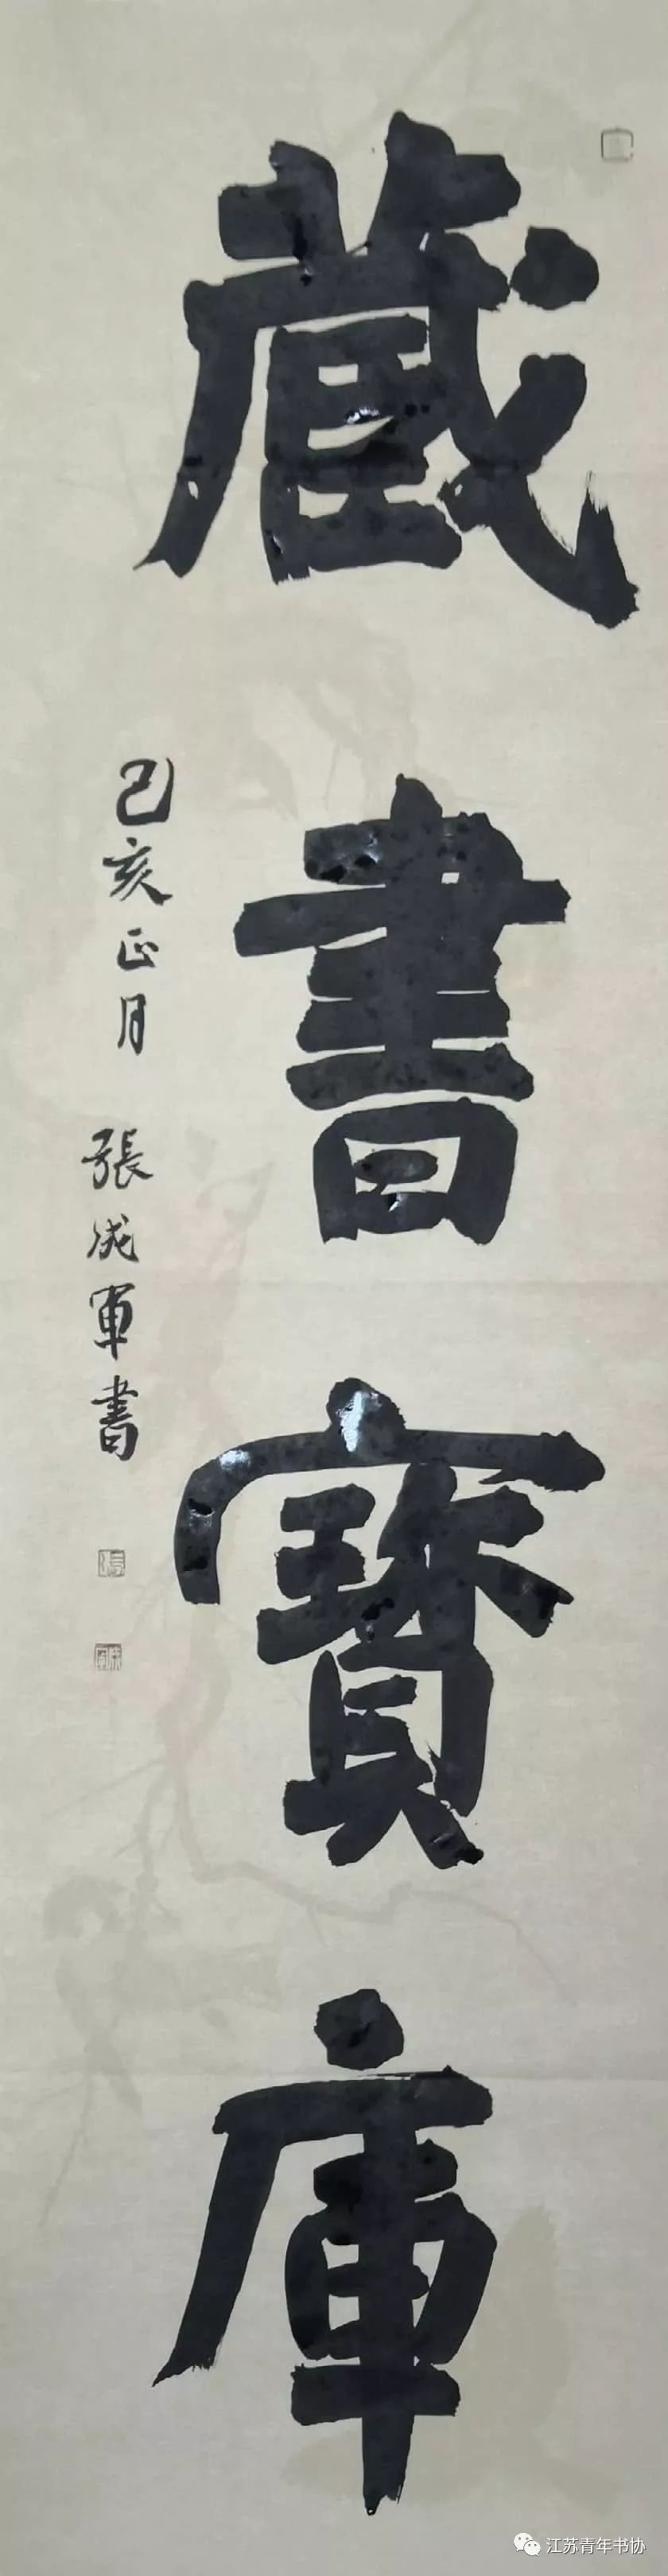 藏書寶庫
己亥正月 張成軍書
江苏青年书协